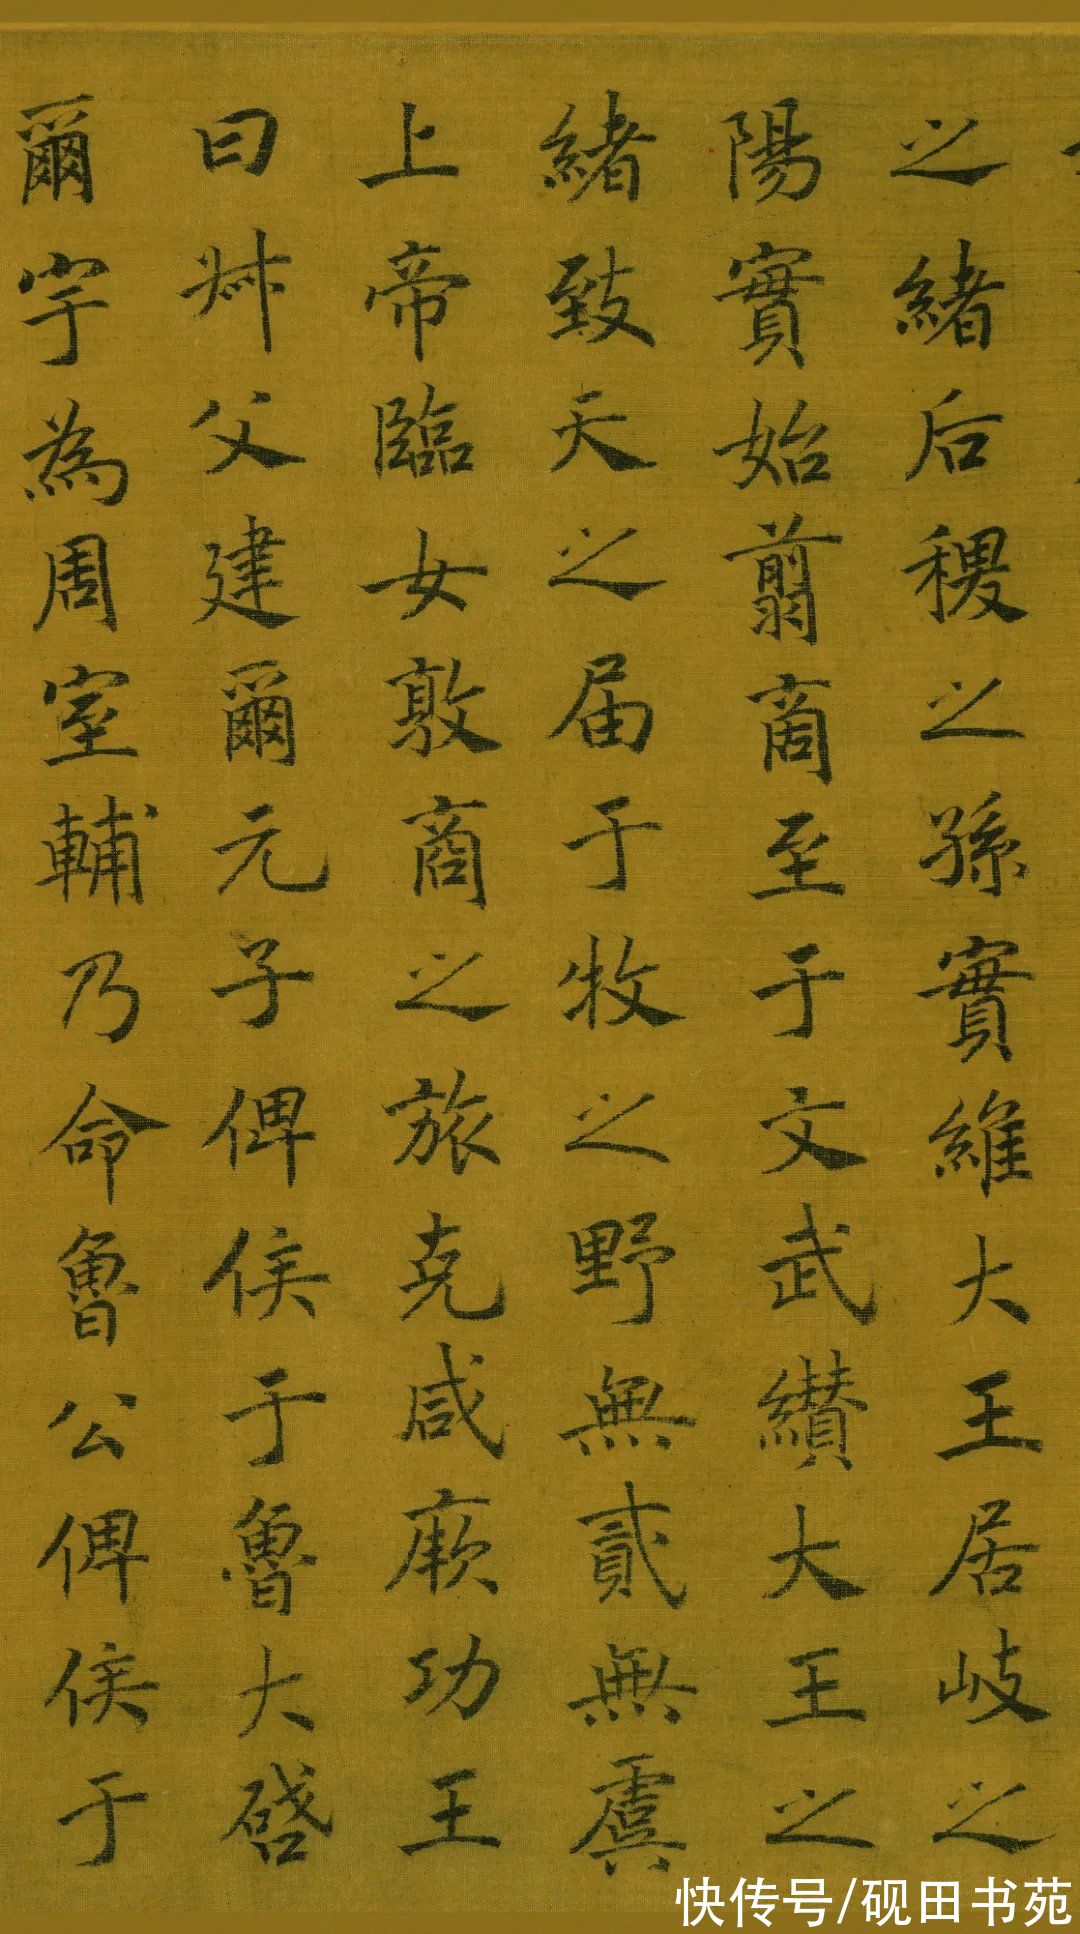 之緒后稷之孫實維大王居岐之
陽實始翦商至于文武纘大王之
緒致天之届于牧之野無貳無虞
上帝臨女敦商之旅克咸厥功王
曰叔父建爾元子俾侯于魯大啓
爾宇為周室輔乃命魯公俾侯于
快传号/砚田书苑